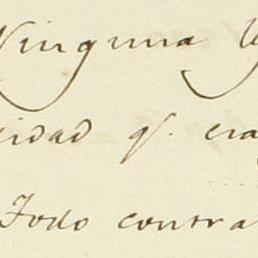 Ninguna
idad q.e era
Todo contra